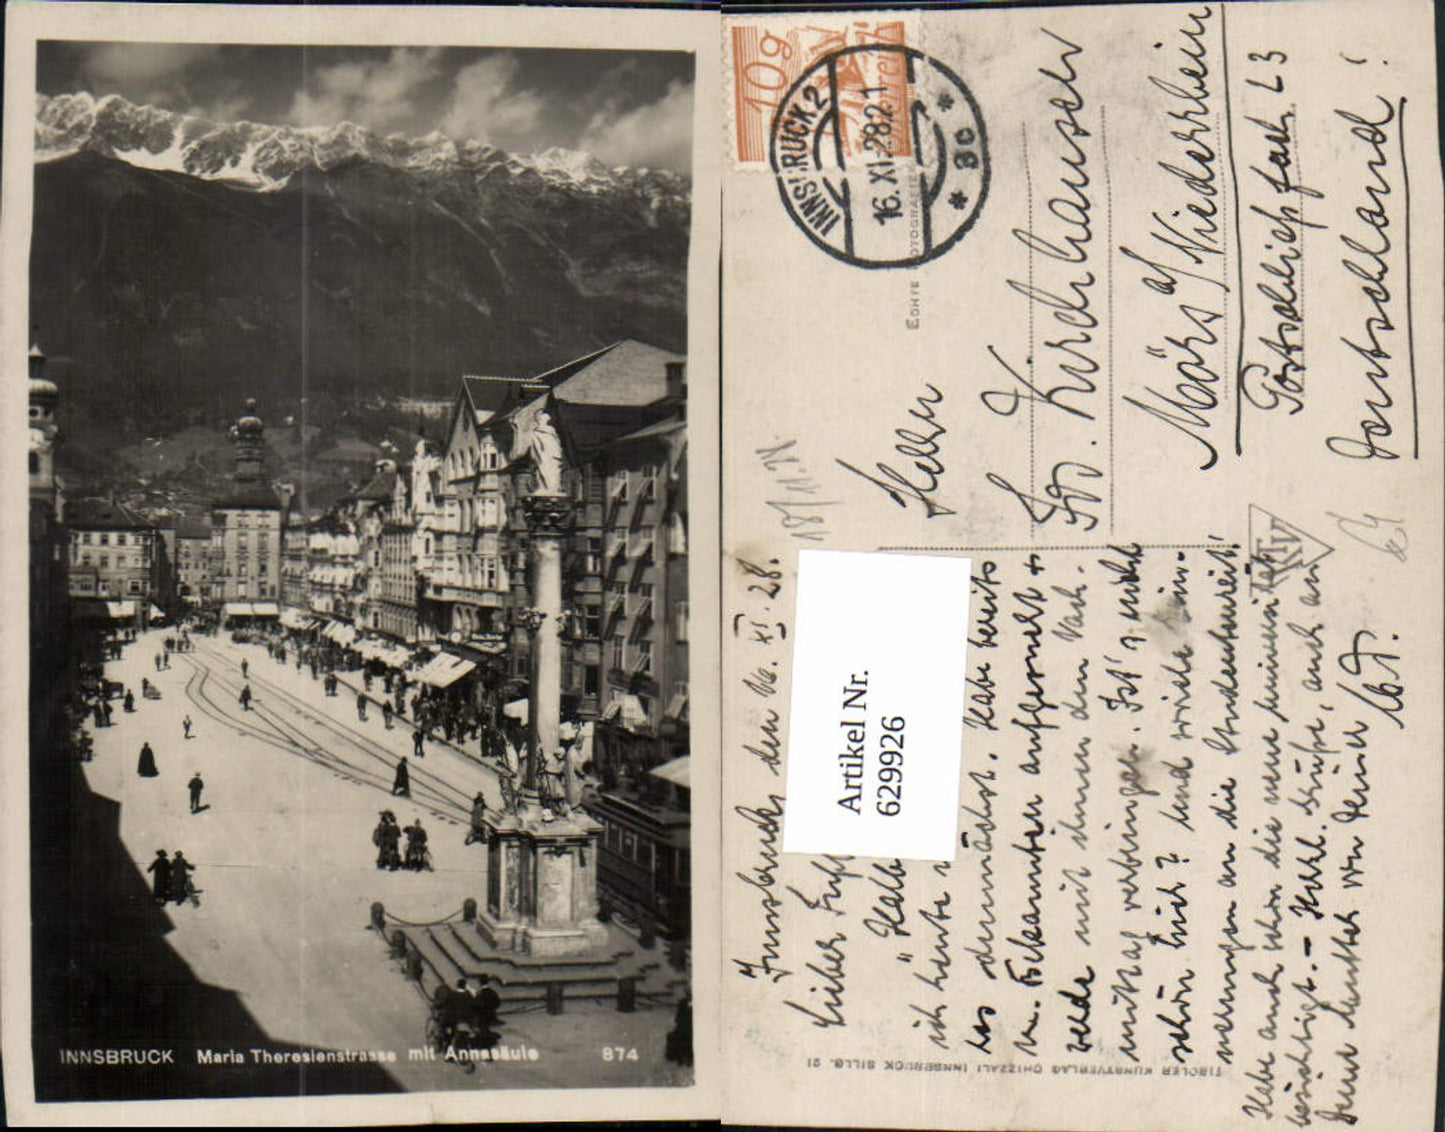 INNSBRUCK Maria Theresienstrasse mit Annasäule 874
10g
INNSBRUCK 2
16.XI.28 21
* 3c *
ECHTE PHOTOGRAFIE
18/11.28.
Herrn
Fdd. Kirchhausen
Mörs a/ Niederrhein
Postschließfach 23
Deutschland!
Artikel Nr.
629926
Innsbruck, den 16. XI. 28.
Lieber
ich heute
los demnächst. Habe bereits
m. Bekannten aufgesucht +
werde mit ihnen den Nach-
mittag verbringen. Ist's nicht
schön hier? Und viele Erin-
nerungen an die Studentenzeit!
Habe auch schon die neue Universität
besichtigt. – Herzl. Grüße, auch an
Deine Mutter von Deinem
TIROLER KUNSTVERLAG CHIZZALI INNSBRUCK SILLG. 21